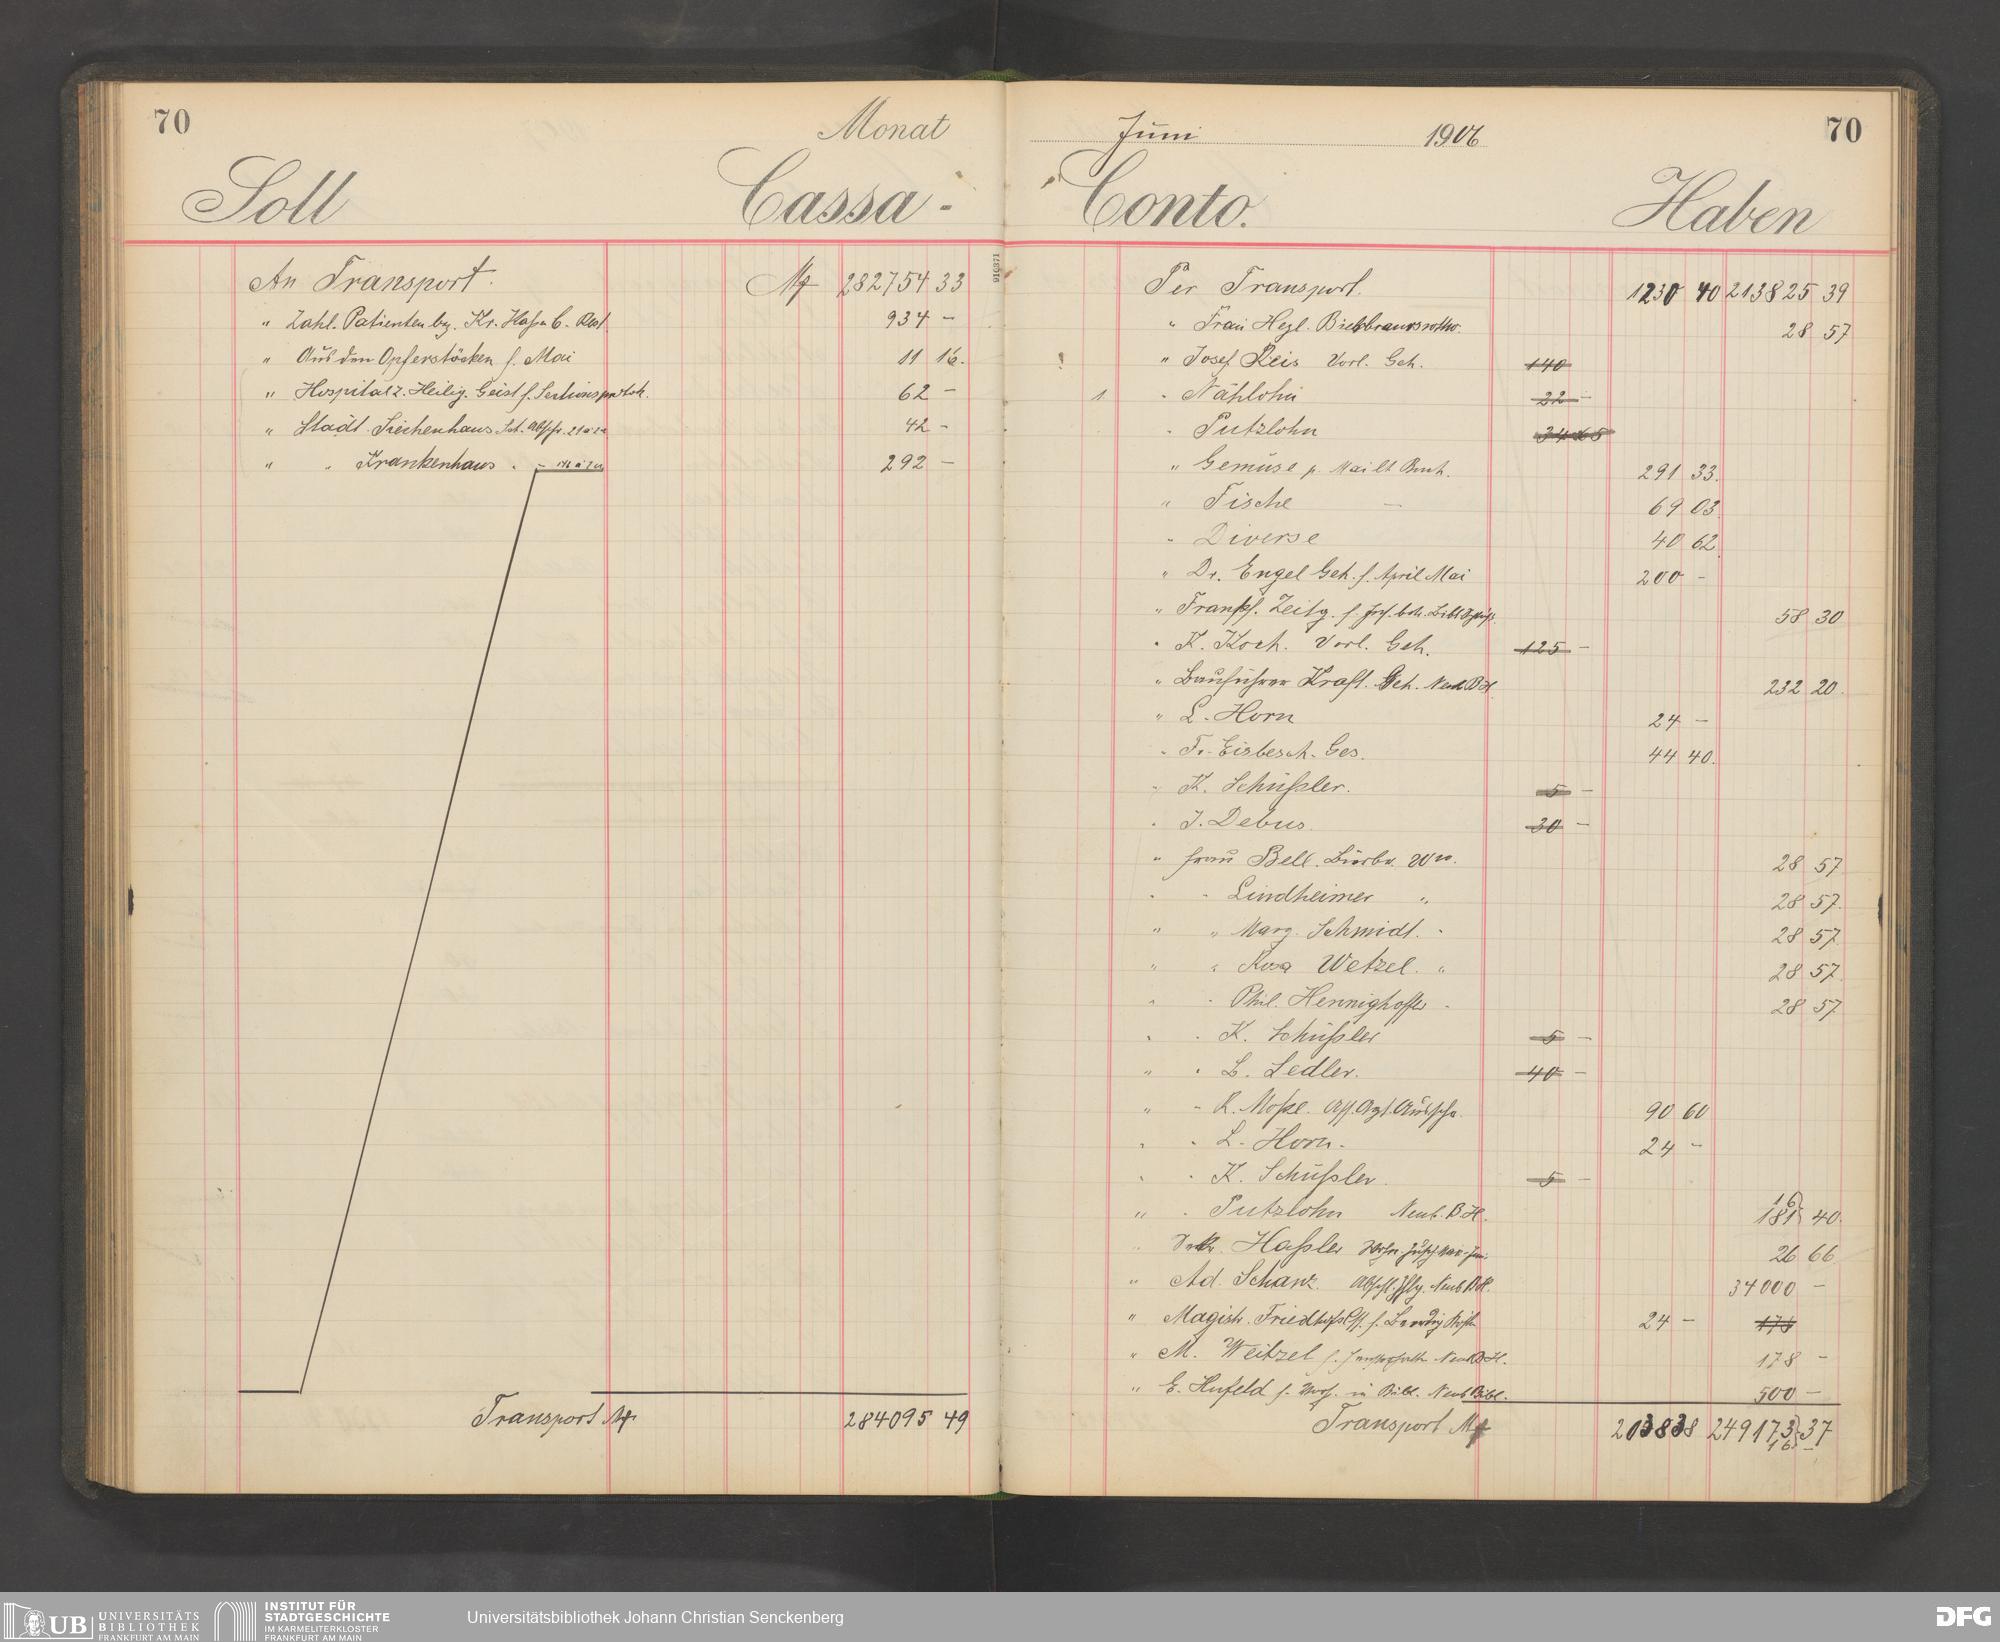 70
Monat
Soll Cassa-
An Transport. M 282754 33
" Zahl. Patienten 934 -
" Aus den Opferstöcken f. Mai 11 16.
" Hospital z. Heilig. Geist f. 62 -
" Städt. Siechenhaus 42 -
" " Krankenhaus 292 -
Transport M 284095 49
910371
Juni 1906
70
Conto. Haben
Per Transport. 1230 40 213825 39
" Frau Hegl. 28 57
" Josef Reis Vorl. Geh. 140
1 " Nählohn 22 -
" Putzlohn 34 65
" Gemüse p. Mai lt Buch. 291 33.
" Fische - 69 03
" Diverse 40 62
" Dr. Engel Geh. f. April Mai 200 -
" Frankf. Zeitg. f. 58 30
" K. Koch. Vorl. Geh. 125 -
" Bauführer Kraft. Geh. Neub. B. H. 232 20.
" L. Horn 24 -
" Fr. Eisbesch. Ges. 44 40.
" K. Schüßler. 5 -
" J. Debus. 30 -
" Frau Bell. 28 57
" " Lindheimer " 28 57.
" " Marg. Schmidt. " 28 57
" " Rosa Wetzel. " 28 57
" " Phil. Hennighoffer " 28 57
" " K. Schüßler 5 -
" " L. Sedler. 40 -
" " R. Moße. 90 60
" " L. Horn. 24 -
" " K. Schüßler. 5 -
" " Putzlohn Neub. B. H. 181 40.
16
" Haßler 26 66
" Ad. Schanz. Neub. B. H. 34000 -
" Magistr. 24 - 178
" M. Weitzel f. Neub. B. H. 178 -
" E. Hufeld f. in Bibl. Neub. Bibl. 500 -
Transport M 2038 38 249173 37
16
UB UNIVERSITÄTS
BIBLIOTHEK
FRANKFURT AM MAIN
INSTITUT FÜR
STADTGESCHICHTE
IM KARMELITERKLOSTER
FRANKFURT AM MAIN
Universitätsbibliothek Johann Christian Senckenberg
DFG